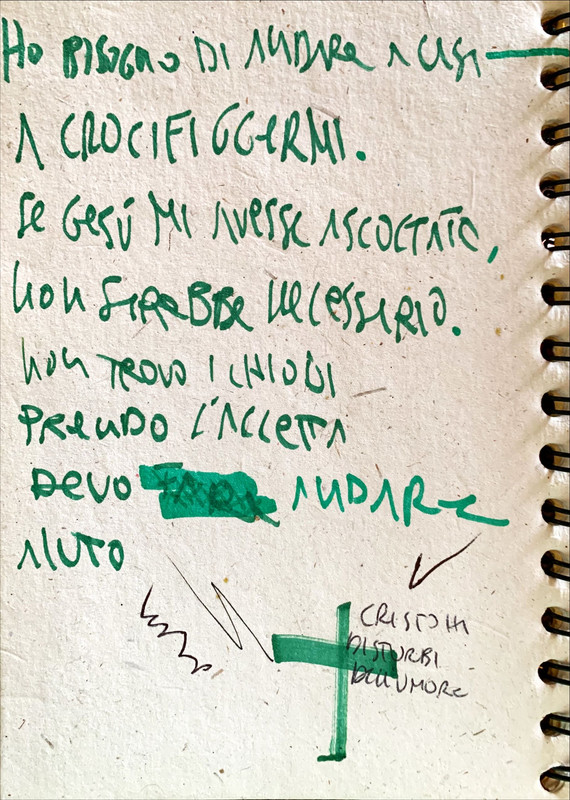 HO BISOGNO DI ANDARE A CASA
A CROCIFIGGERMI.
SE GESÚ MI AVESSE ASCOLTATO,
NON SAREBBE NECESSARIO.
NON TROVO I CHIODI
PRENDO L'ACCETTA
DEVO ANDARE
AIUTO
CRISTO HA
DISTURBI
DELL'UMORE